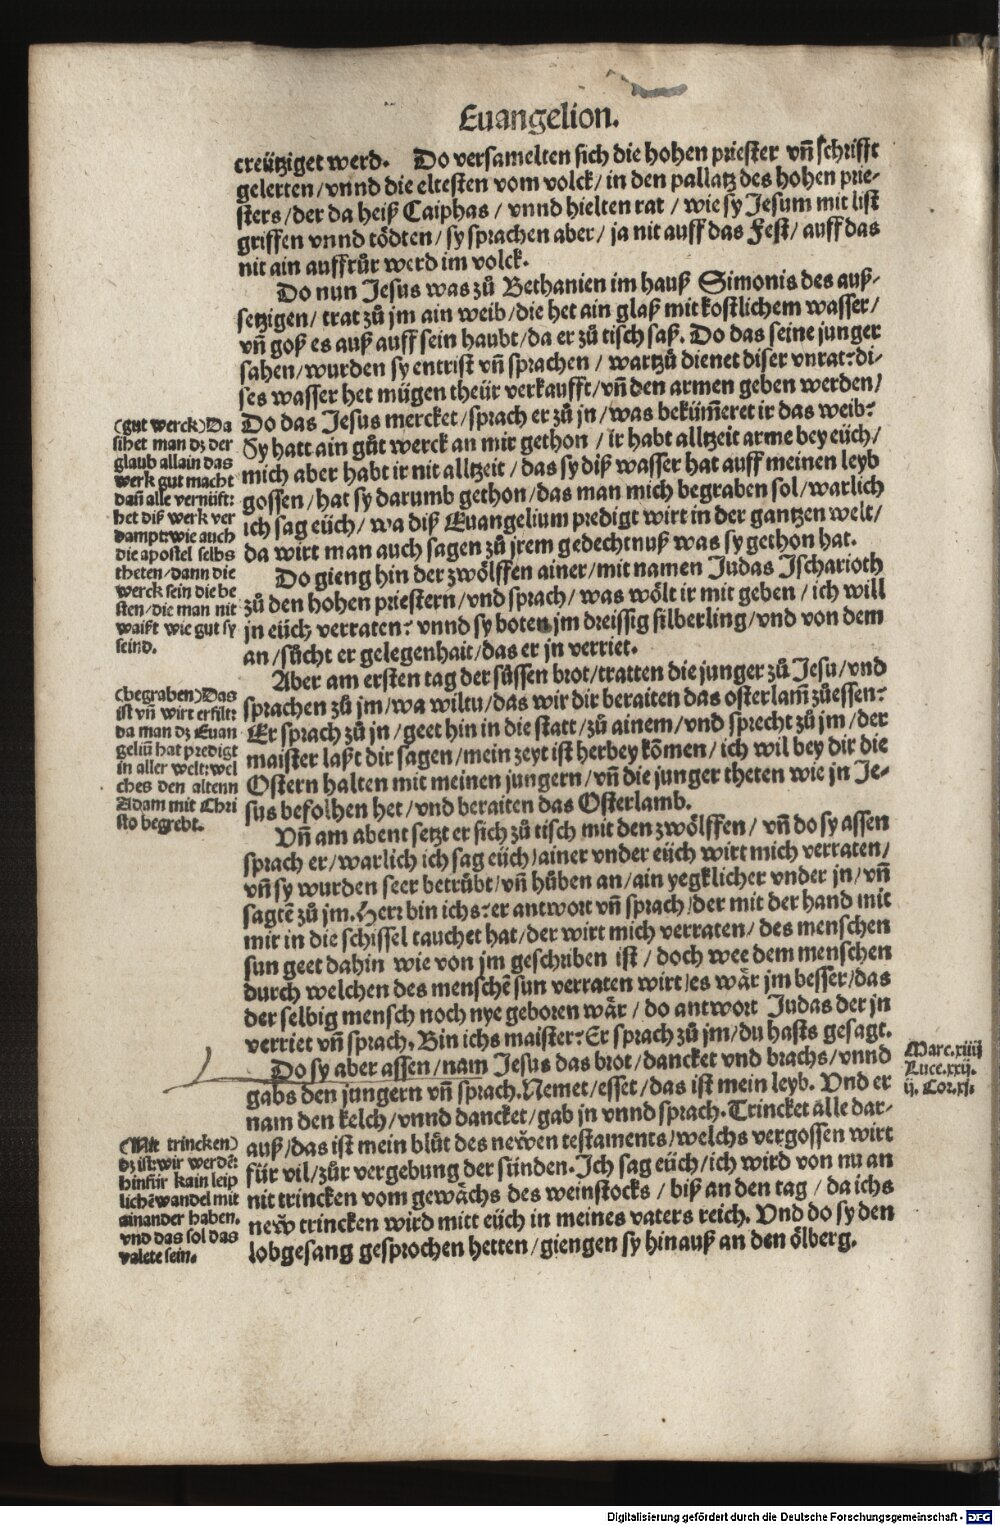 Euangelion.
creütziget werd. Do versamelten sich die hohen priester vñ schrifft
gelerten/vnnd die eltesten vom volck/in den pallatz des hohen prie-
sters/der da heiß Caiphas/vnnd hielten rat/wie sy Jesum mit list
griffen vnnd tödten/sy sprachen aber/ja nit auff das Fest/auff das
nit ain auffrůr werd im volck.
Do nun Jesus was zů Bethanien im hauß Simonis des auß-
setzigen/trat zů jm ain weib/die het ain glaß mit kostlichem wasser/
vñ goß es auß auff sein haubt/da er zů tisch saß. Do das seine junger
sahen/wurden sy entrist vñ sprachen/wartzů dienet diser vnrat? di-
ses wasser het mügen theür verkaufft/vñ den armen geben werden/
Do das Jesus mercket/sprach er zů jn/was bekümeret ir das weib?
Sy hatt ain gůt werck an mir gethon/ir habt alltzeit arme bey eüch/
mich aber habt ir nit alltzeit/das sy diß wasser hat auff meinen leyb
gossen/hat sy darumb gethon/das man mich begraben sol/warlich
ich sag eüch/wa diß Euangelium predigt wirt in der gantzen welt/
da wirt man auch sagen zů jrem gedechtnuß was sy gethon hat.
(gut werck) Da
sihet man dz der
glaub allain das
werk gut macht
dañ alle vernüft?
het diß werk ver
dampt: wie auch
die apostel selbs
theten/dann die
werck sein die be
sten/die man nit
waißt wie gut sy
seind.
Do gieng hin der zwölffen ainer/mit namen Judas Ischarioth
zů den hohen priestern/vnd sprach/was wölt ir mit geben/ich will
jn eüch verraten? vnnd sy boten jm dreissig silberling/vnd von dem
an/sůcht er gelegenhait/das er jn verriet.
Aber am ersten tag der sůssen brot/tratten die junger zů Jesu/vnd
sprachen zů jm/wa wiltu/das wir dir beraiten das osterlam̃ zů essen?
Er sprach zů jn/geet hin in die statt/zů ainem/vnd sprecht zů jm/der
maister laßt dir sagen/mein zeyt ist herbey kõmen/ich wil bey dir die
Ostern halten mit meinen jungern/vñ die junger theten wie jn Je-
sus befolhen het/vnd beraiten das Osterlamb.
(begraben) Das
ist vñ wirt erfilt?
da man dz Euan
geliũ hat predigt
in aller welt: wel
ches den altenn
Adam mit Chri
sto begrebt.
Vñ am abent setzt er sich zů tisch mit den zwölffen/vñ do sy assen
sprach er/warlich ich sag eüch/ainer vnder eüch wirt mich verraten/
vñ sy wurden seer betrůbt/vñ hůben an/ain yegklicher vnder jn/vñ
sagtẽ zů jm. Herr bin ichs? er antwort vñ sprach/der mit der hand mit
mir in die schissel tauchet hat/der wirt mich verraten/des menschen
sun geet dahin wie von jm geschriben ist/doch wee dem menschen
durch welchen des menschẽ sun verraten wirt/es wär jm besser/das
der selbig mensch noch nye geboren wär/do antwort Judas der jn
verriet vñ sprach. Bin ichs maister? Er sprach zů jm/du hasts gesagt.
Do sy aber assen/nam Jesus das brot/dancket vnd brachs/vnnd
gabs den jungern vñ sprach. Nemet/esset/das ist mein leyb. Vnd er
nam den kelch/vnnd dancket/gab jn vnnd sprach. Trincket alle dar-
auß/das ist mein blůt des newen testaments/welchs vergossen wirt
für vil/zůr vergebung der sünden. Ich sag eüch/ich wird von nu an
nit trincken vom gewächs des weinstocks/biß an den tag/da ichs
new trincken wird mitt eüch in meines vaters reich. Vnd do sy den
lobgesang gesprochen hetten/giengen sy hinauß an den ölberg.
Marc. xiiij
Luce. xxij.
ij. Cor. xj.
(Nit trincken)
dz ist: wir werdẽ
hinfür kain leip
lichẽ wandel mit
ainander haben.
vnd das sol das
valete sein.
Digitalisierung gefördert durch die Deutsche Forschungsgemeinschaft - DFG